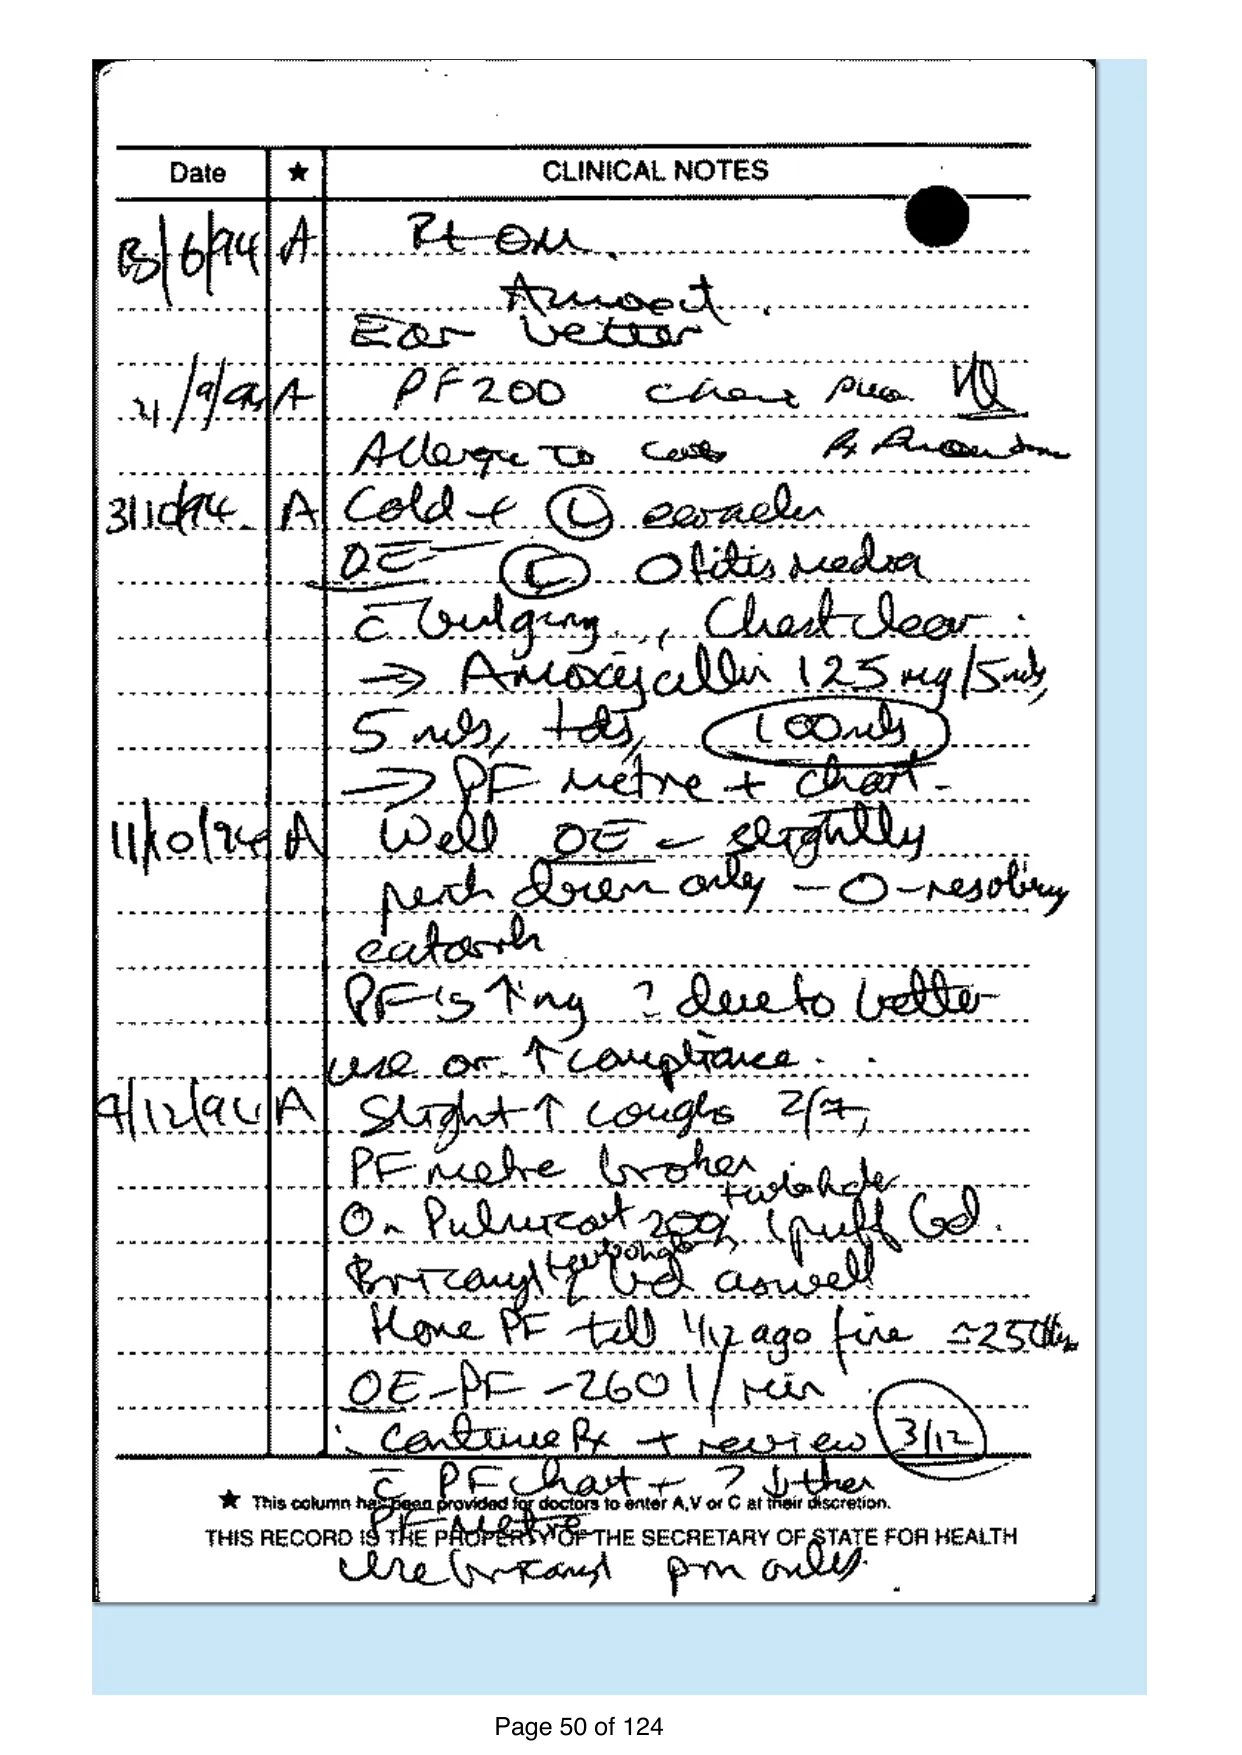 Date ★ CLINICAL NOTES
/6/94 A Rt OM.
Ear better
/9/94 A PF 200
Allergic to cats Rx
3/10/94 A Cold + (L) earache
OE (L) Otitis media
c̄ bulging, Chest clear.
→ Amoxycillin 125 mg/5mls,
5 mls, tds, 100mls
→ PF metre + chart.
11/10/94 A Well OE - slightly
pink drum only - O - resolving
catarrh
PF is ↑ing ? due to better
use or ↑ compliance.
9/12/94 A Slight ↑ coughs 2/7,
PF metre broken
+ turbohaler
On Pulmicort 200, 1 puff bd.
turbohaler
Bricanyl bd aswell
Home PF till 1/12 ago fine
OE - PF - 260 l/min
∴ continue Rx + review 3/12
c̄ PF chart + ?
★ This column has been provided for doctors to enter A,V or C at their discretion.
PF metre
THIS RECORD IS THE PROPERTY OF THE SECRETARY OF STATE FOR HEALTH
Use bricanyl prn only.
Page 50 of 124